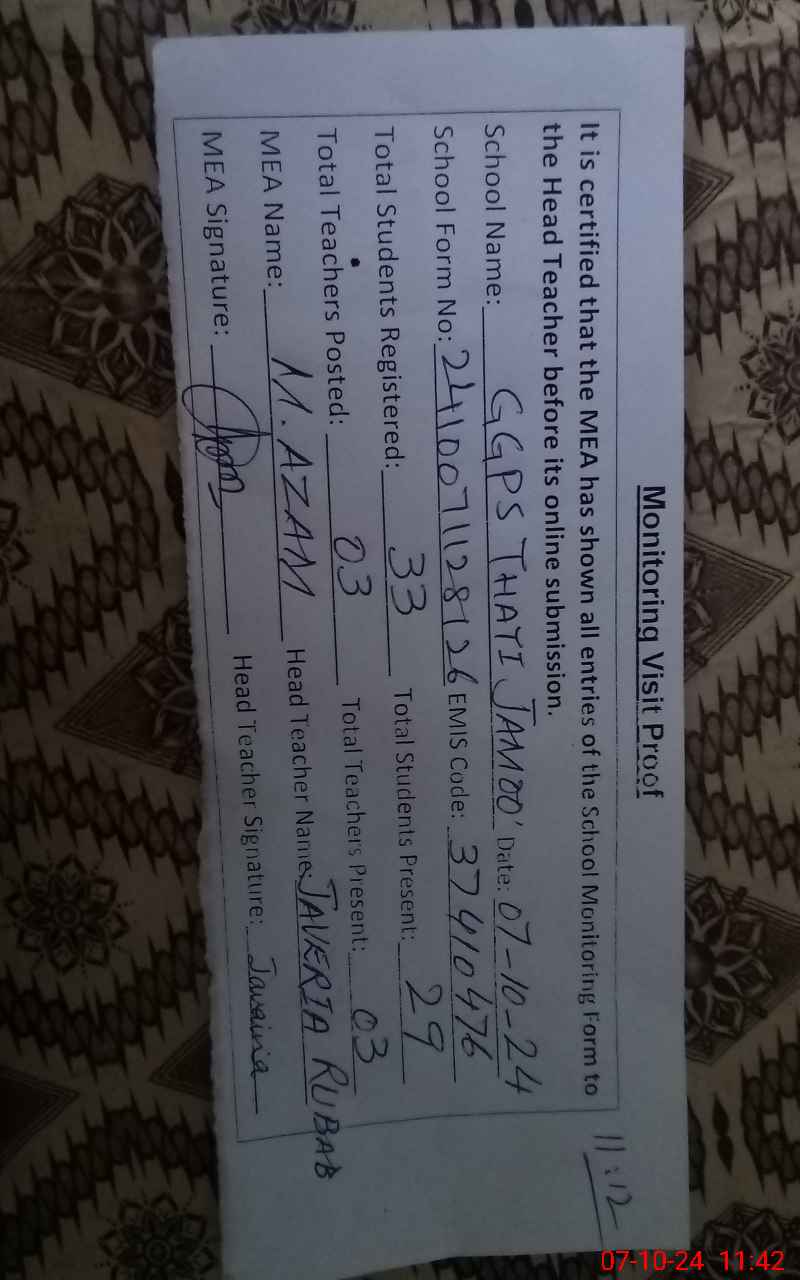 Monitoring Visit Proof
11:12
It is certified that the MEA has shown all entries of the School Monitoring Form to
the Head Teacher before its online submission.
School Name: GGPS THATI JAMOO' Date: 07-10-24
School Form No: 2410071128126 EMIS Code: 37410476
Total Students Registered: 33 Total Students Present: 29
Total Teachers Posted: 03 Total Teachers Present: 03
MEA Name: M. AZAM Head Teacher Name: JAVERIA RUBAB
MEA Signature: Head Teacher Signature: Javairia
07-10-24 11:42